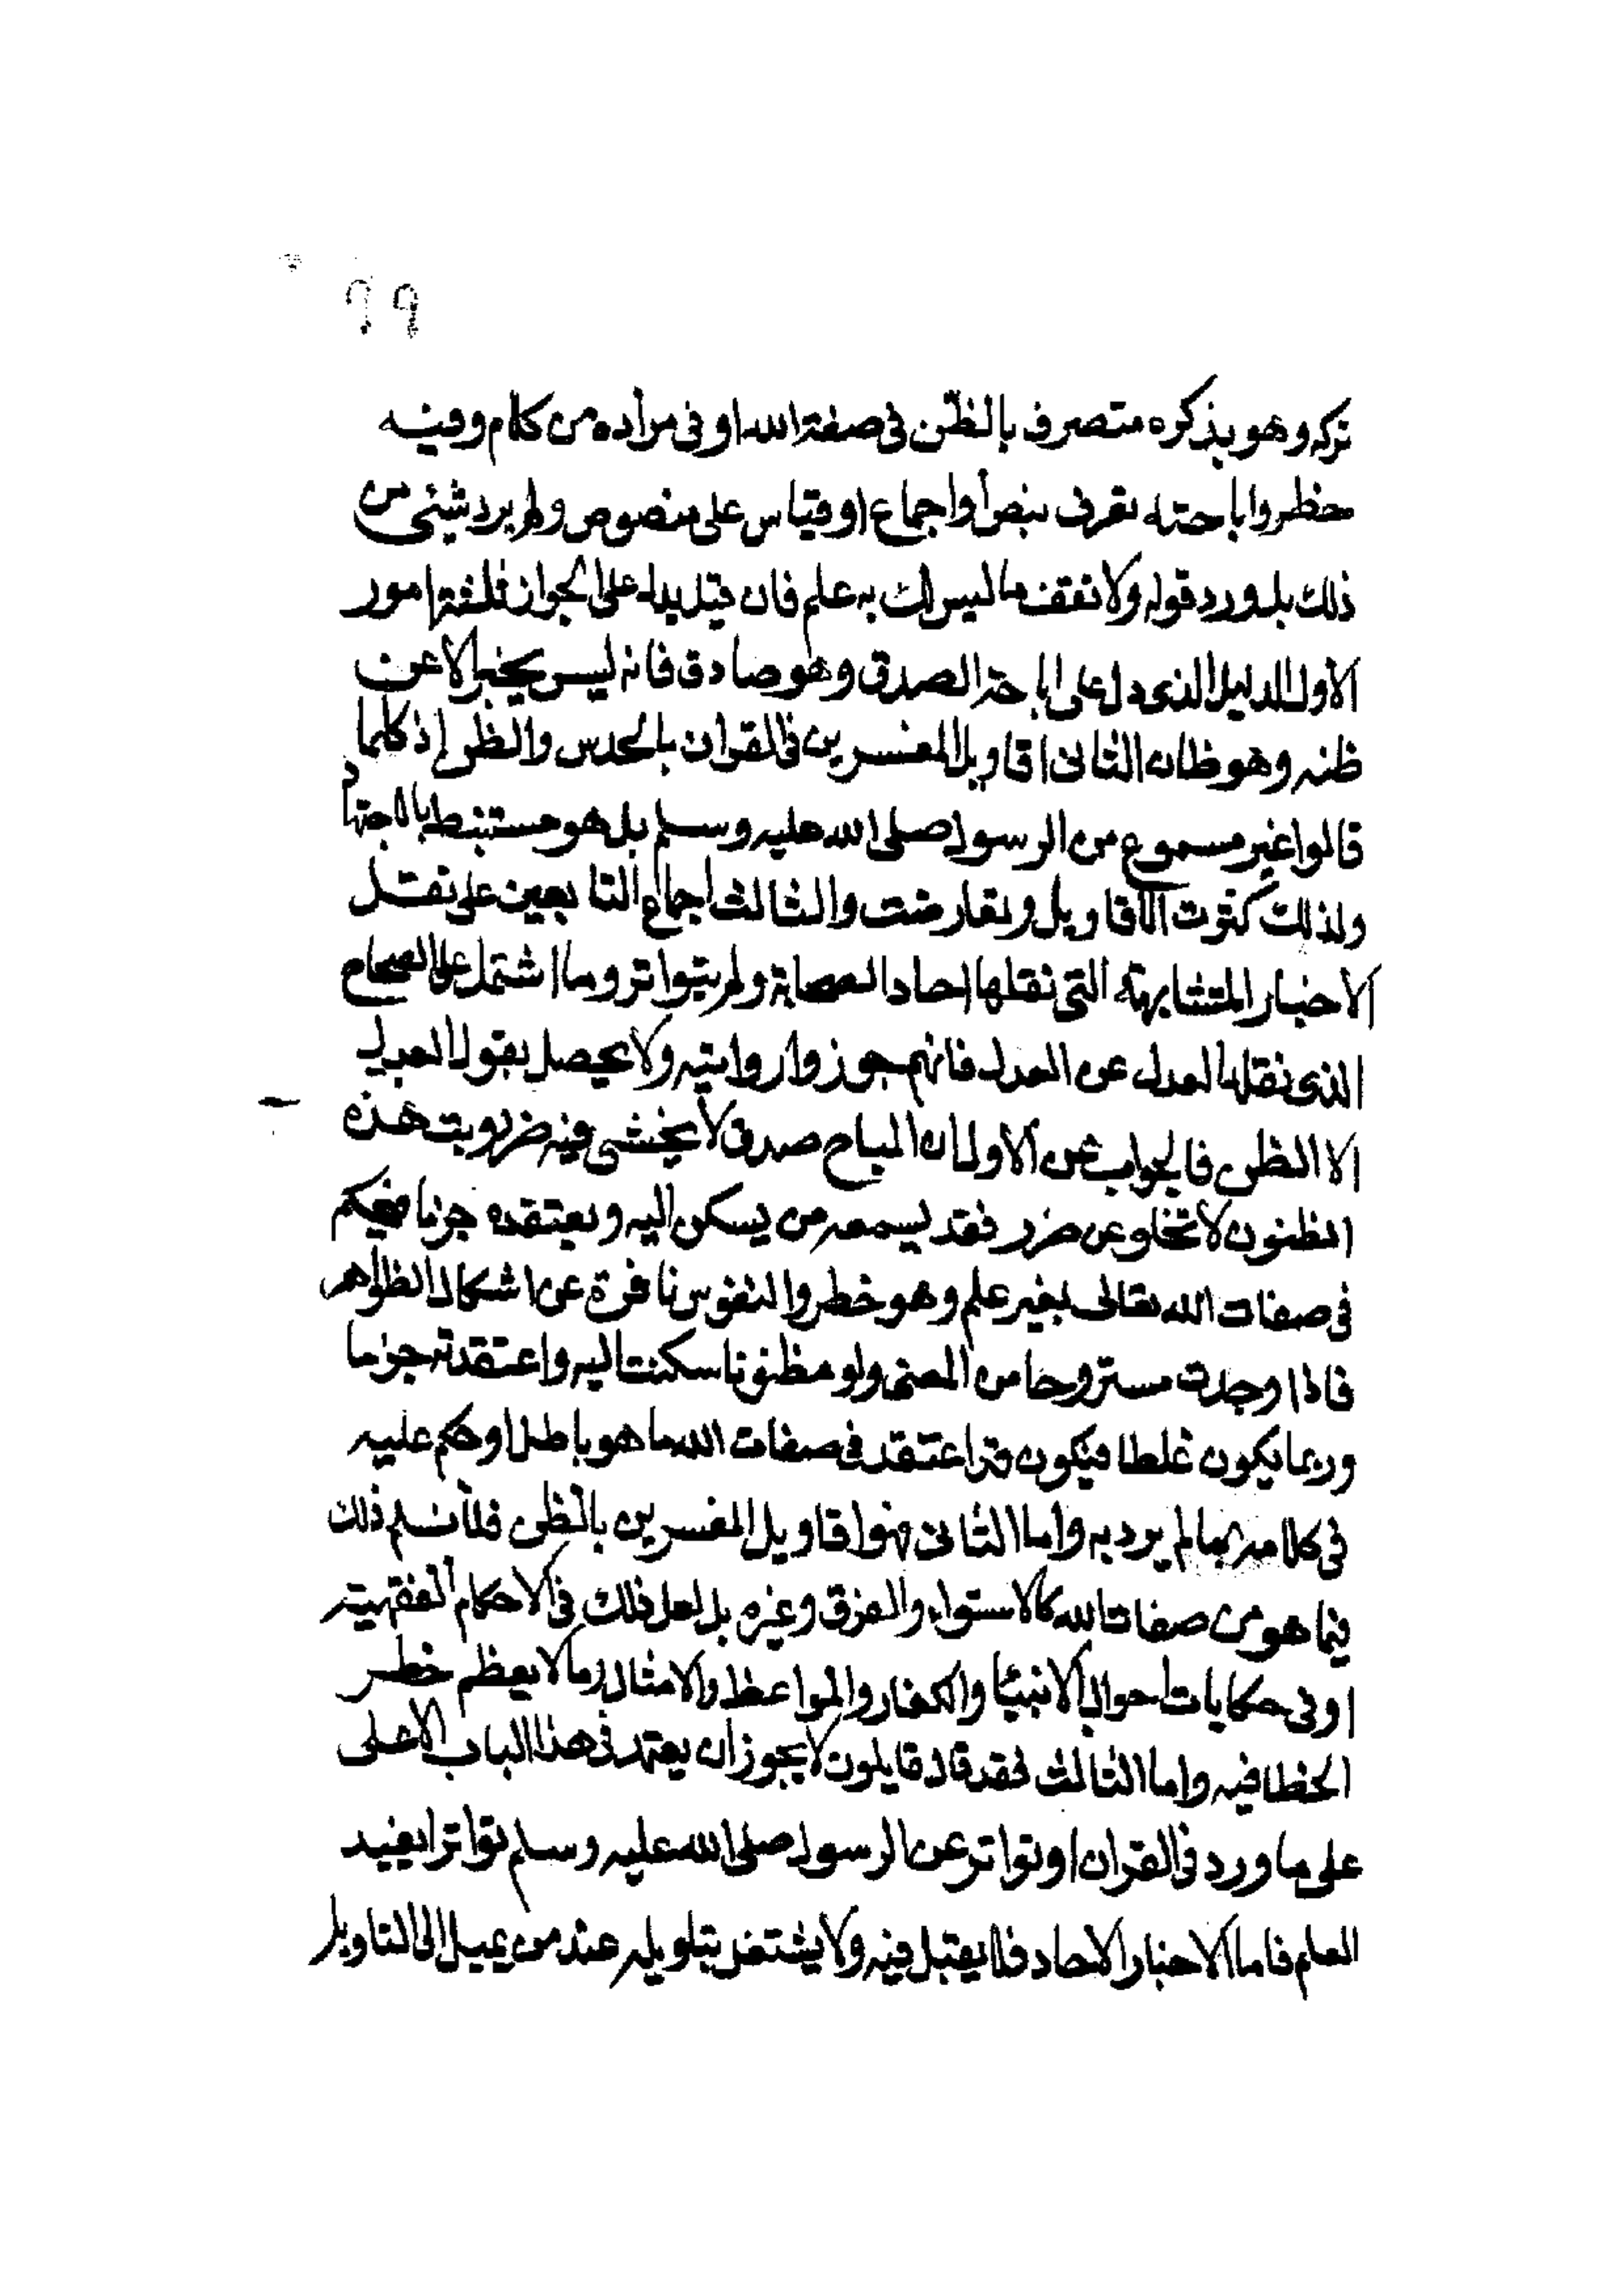 ٩٩
تركه وهو بذكره متصرف بالظن فى صفة الله او فى مراده من كلام وفيه
حظر واباحته تعرف بنص أواجماع اوقياس على منصوص ولم يرد شئى من
ذلك بل ورد قوله ولا تقف ما ليس لك به علم فان قيل يدل على الجواز ثلثة امور
الاول الدليل الذى دل على اباحة الصدق وهو صادق فانه ليس يخبر الا عن
ظنه وهو ظان الثانى اقاويل المفسرين فى القران بالحدس والظن إذ كلما
قالوا غير مسموع من الرسول صلى الله عليه وسلم بل هو مستنبط بالاجتهاد
ولذلك كثرت الاقاويل وتعارضت والثالث اجماع التابعين على نقل
الاخبار المتشابهة التى نقلها احاد الصحابة ولم يتواتر وما اشتمل على الصحاح
الذى نقله العدل عن العدل فانهم جوزوا روايته ولا يحصل بقول العدل
الا الظن فالجواب عن الاول ان المباح صدق لا يخشى فيه ضرر وبت هذه
الظنون لا تخلو عن ضرر فقد يسمعه من يسكن اليه ويعتقده جزما فيحكم
فى صفات الله تعالى بغير علم وهو خطر والنفوس نافرة عن اشكال الظواهر
فاذا وجدت مستروحا من المعنى ولو مظنونا سكنت اليه واعتقدته جزما
وربما يكون غلطا فيكون قد اعتقد فى صفات الله ما هو باطل او حكم عليه
فى كلامه بما لم يرد به واما الثانى وهو اقاويل المفسرين بالظن فلا نسلم ذلك
فيما هو من صفات الله كالاستواء والفوق وغيره بل لعل ذلك فى الاحكام الفقهية
او فى حكايات احوال الانبيا والكفار والمواعظ والامثال وما لا يعظم خطر
الخطا فيه واما الثالث فقد قال قايلون لا يجوز ان يعتمد فى هذا الباب الا على
على ما ورد فى القران او تواتر عن الرسول صلى الله عليه وسلم تواترا يفيد
العلم فاما الاخبار الاحاد فلا يقبل فيه ولا يشتغل بتاويله عند من يميل الى التاويل